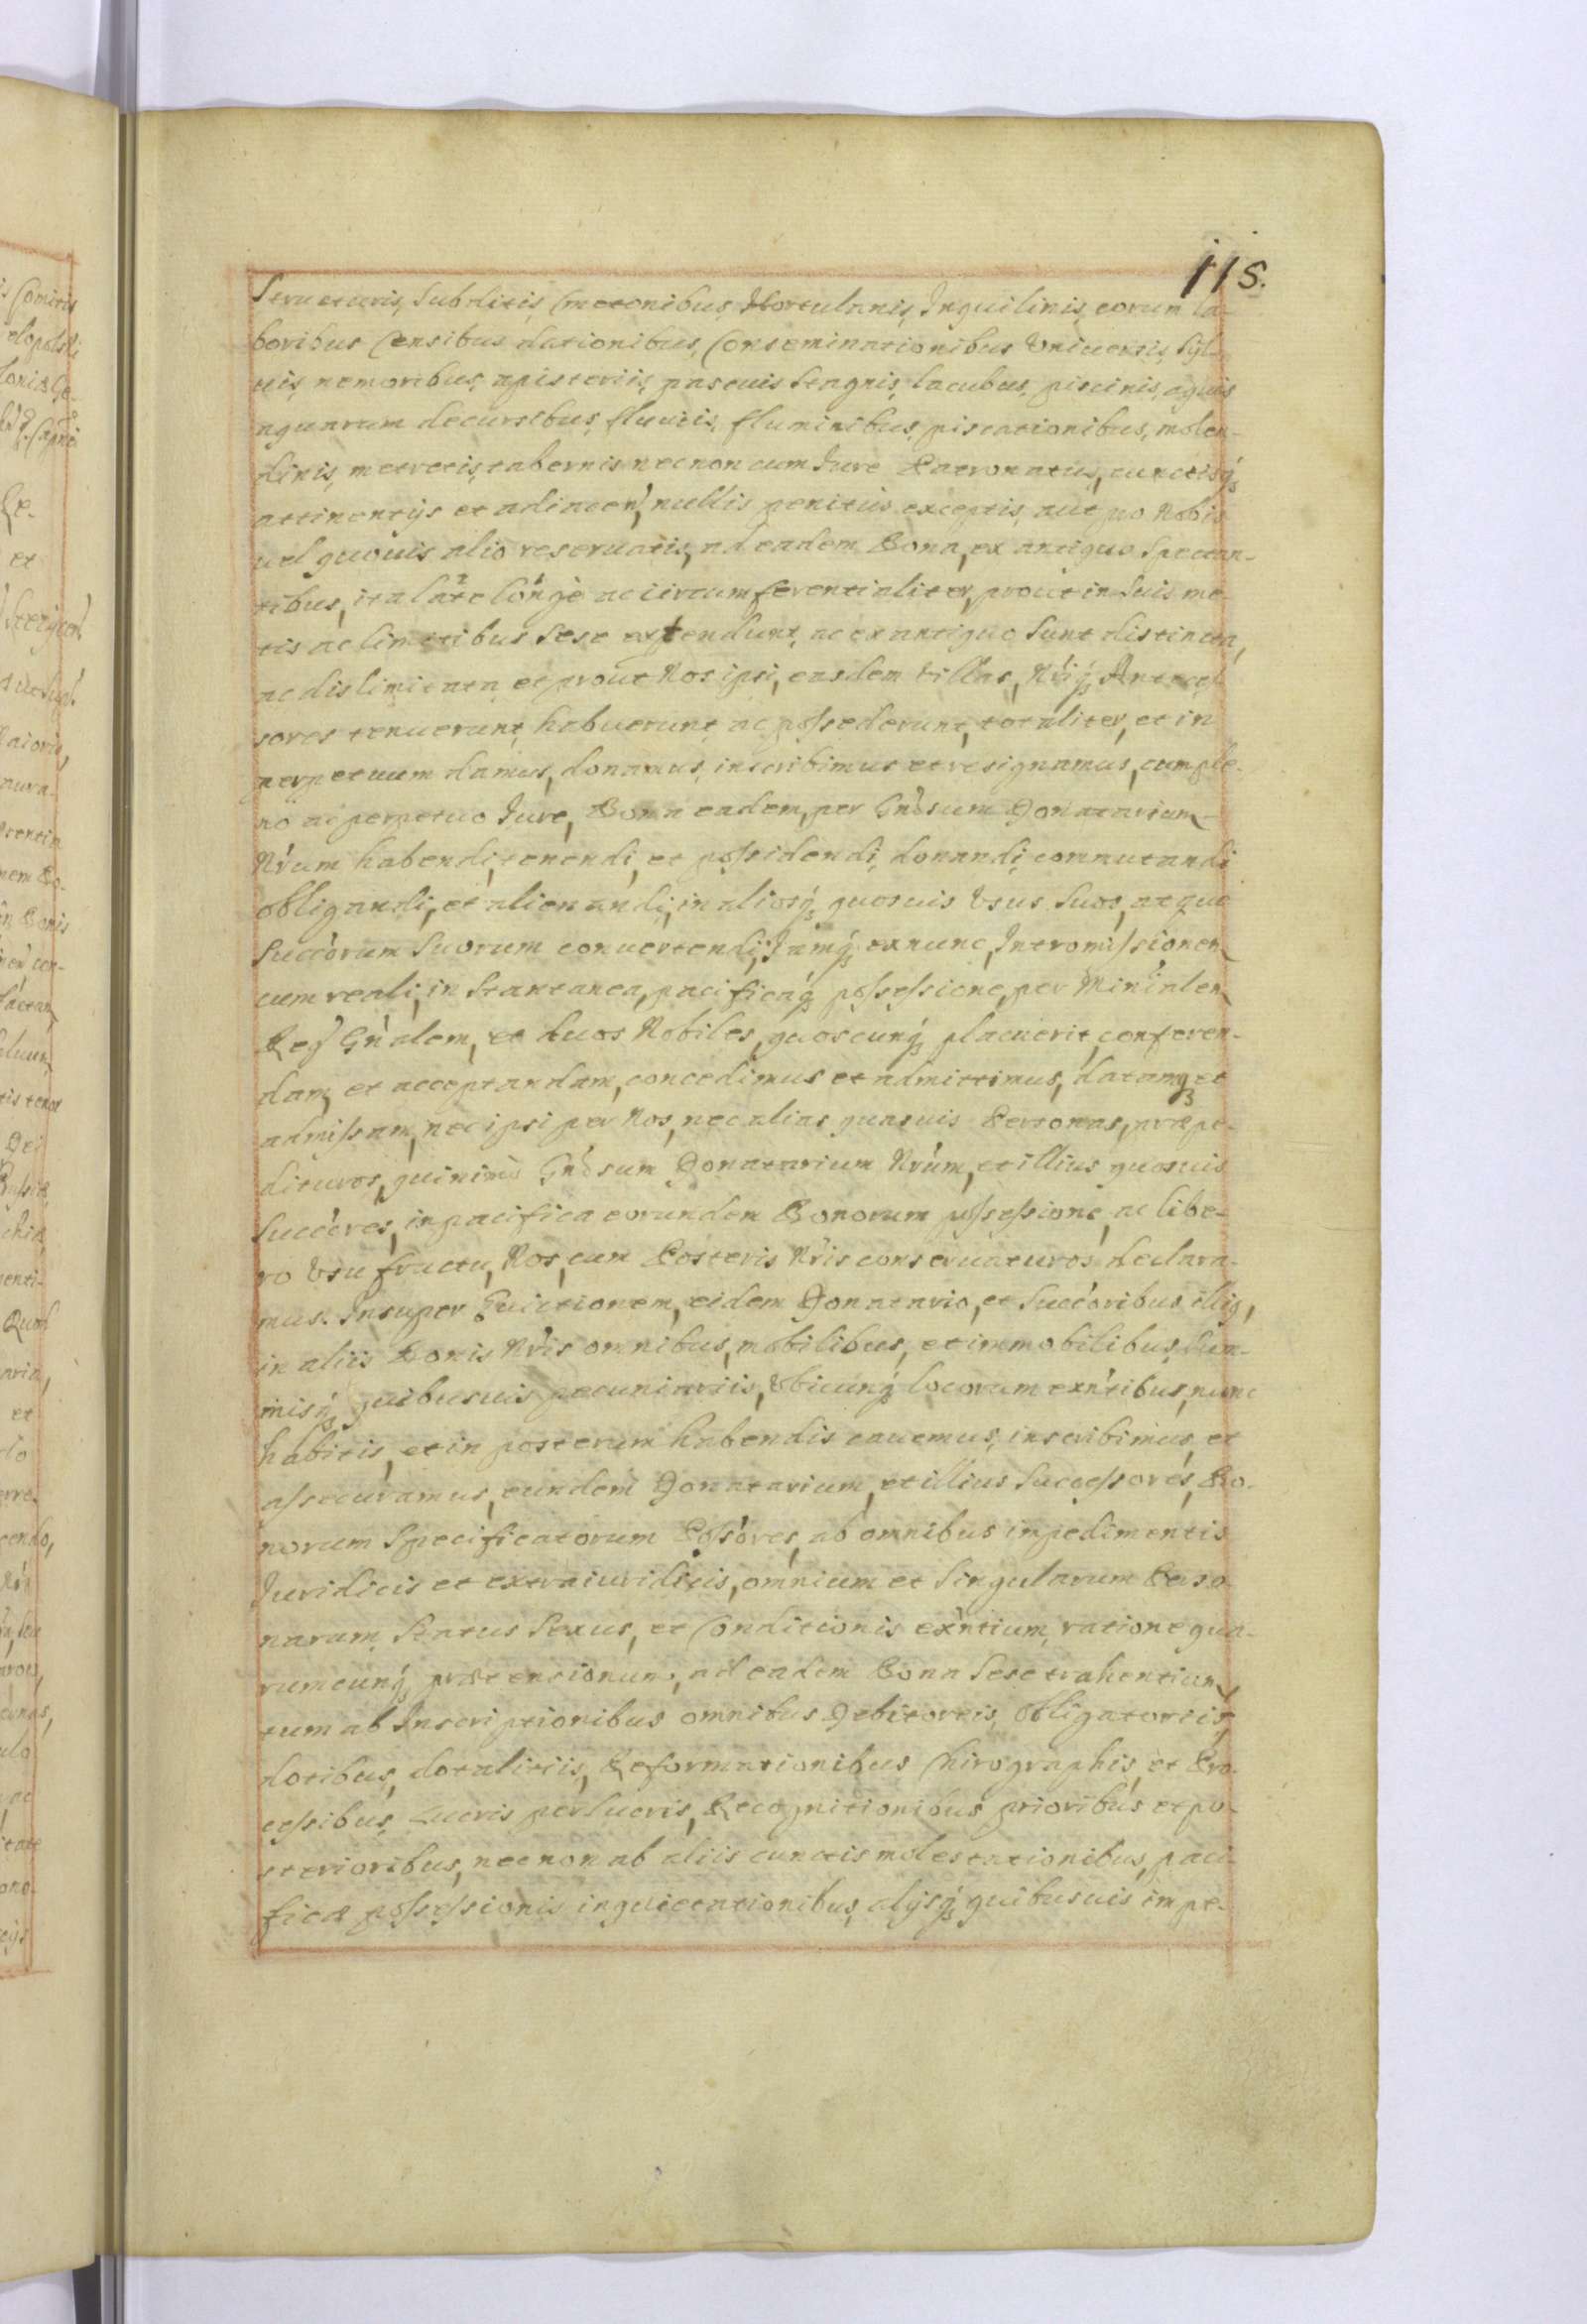 115.
Structuris, Subditis, Cmetonibus, Hortulanis, Inquilinis, eorum la-
boribus Censibus dationibus, Conseminationibus Vniuersis, Syl-
uis, nemoribus, apisteriis, pascuis Stagnis, lacubus, piscinis, aquis
aquarum decursibus, fluuiis, fluminibus, piscationibus, molen-
dinis, metretis, tabernis necnon cum Jure Patronatus, cunctisq́
attinentijs et adiacen: nullis penitùs exceptis, aut pro Nobis
uel quouis alio reseruatis, ad eadem Bona, ex antiquo Spectan-
tibus, ita latè longè ac circumferentialiter, prout in Suis me-
tis ac limitibus Sese extendunt, ac ex antiquo Sunt distincta,
ac dislimitata et prout Nos ipsi, easdem Villas, Nŕiq́ Anteces-
sores tenuerunt, habuerunt, ac possederunt, totaliter, et in
perpetuum damus, donamus, inscribimus et resignamus, cum ple-
no ac perpetuo Jure, Bona eadem, per Gńosum Donatarium
Nŕum habendi, tenendi, et possidendi, donandi, commutandi
obligandi, et alienandi, in aliosq́ quosuis Vsus Suos, atque
Succ̃orum Suorum conuertendi, Jamq́ ex nunc, Intromissionem
cum reali, instantanea, pacificaq́ possessione, per Min̄ialem
Reg̃ Gńalem, et duos Nobiles, quoscunq́ placuerit, conferen-
dam, et acceptandam, concedimus et admittimus, datamq́ et
admissam, nec ipsi per Nos, nec alias quasuis Personas, præpe-
dituros, quinimò Gńosum Donatarium Nŕum, et illius quosuis
Succ̃ores, in pacifica eorundem Bonorum possessione, ac libe-
ro Vsufructu, Nos, cum Posteris Nŕis conseruaturos declara-
mus. Insuper Euictionem, eidem Donatario, et Succ̃oribus illig,
in aliis Bonis Nŕis omnibus, mobilibus, et immobilibus, Sum-
misq́ quibusuis pecuniariis, Vbicunq́ locorum exńtibus, nunc
habitis, et in posterum habendis cauemus, inscribimus, et
assecuramus, eundem Donatarium, et illius Successores, Bo-
norum Specificatorum Possõres, ab omnibus inpedimentis
Juridicis et extraiuridicis, omnium et Singularum Perso-
narum, Status Sexus, et Conditionis exńtium, ratione qua-
rumcunq́ prætensionum, ad eadem Bona Sese trahentium
tum ab Inscriptionibus omnibus Debitoriis, Obligatoriis,
dotibus, dotalitiis, Reformationibus Chirographis, et Pro-
cessibus, Lucris perlucris, Recognitionibus prioribus et po-
sterioribus, necnon ab aliis cunctis molestationibus, paci-
ficæ possessionis inquietationibus, alijsq́ quibusuis impe-